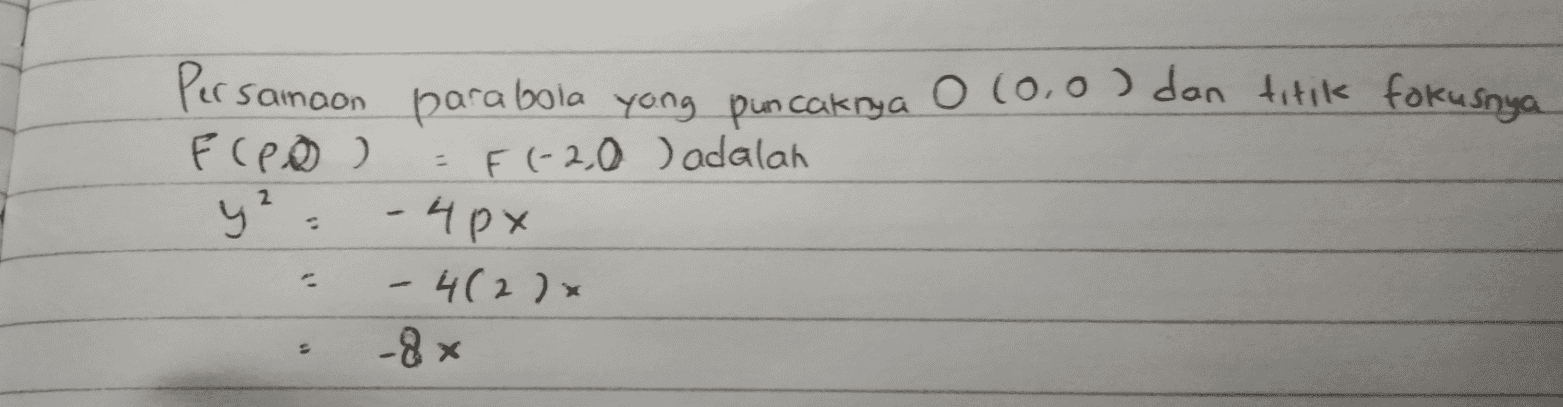 Persamaan parabola yang puncaknya O (0,0) dan titik fokusnya
F(p,0) = F(-2,0) adalah
y² = -4px
= -4(2)x
= -8x